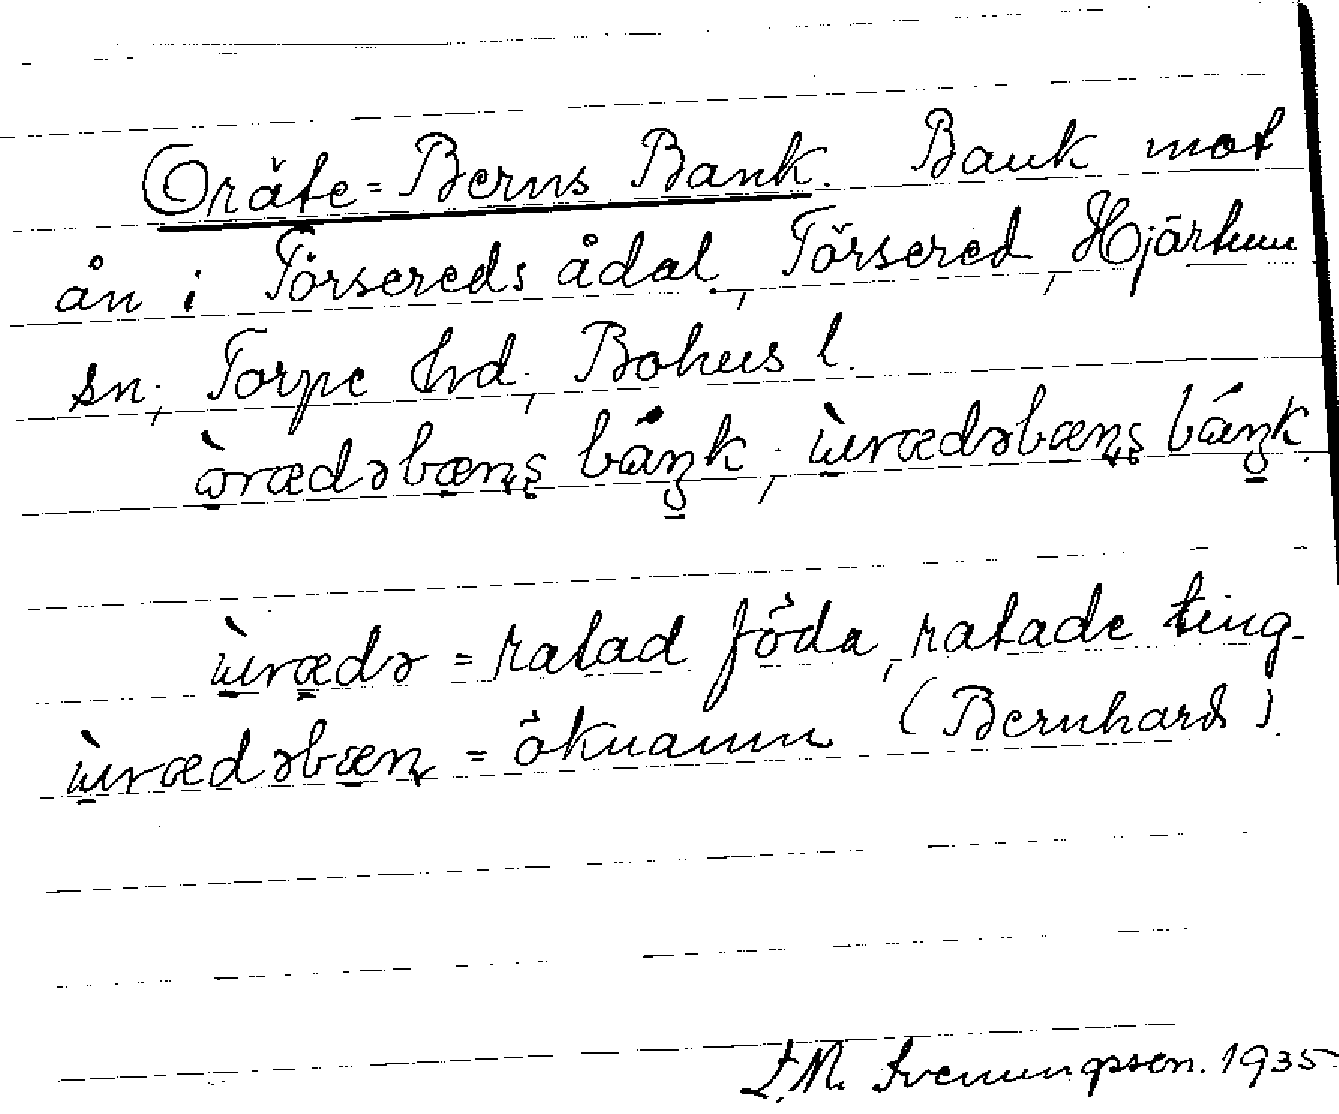 Oräte=Berns Bank. Bank mot
ån i Törsereds ådal, Törsered, Hjärtum
sn, Torpe hrd, Bohus l.
ɷ̀rædəbæn̥s báŋk, ùrædəbæn̥s báŋk.
ùrædə = ratad föda, ratade ting.
ùrædəbæn = öknamn (Bernhard).
L.M. Svenungsson. 1935